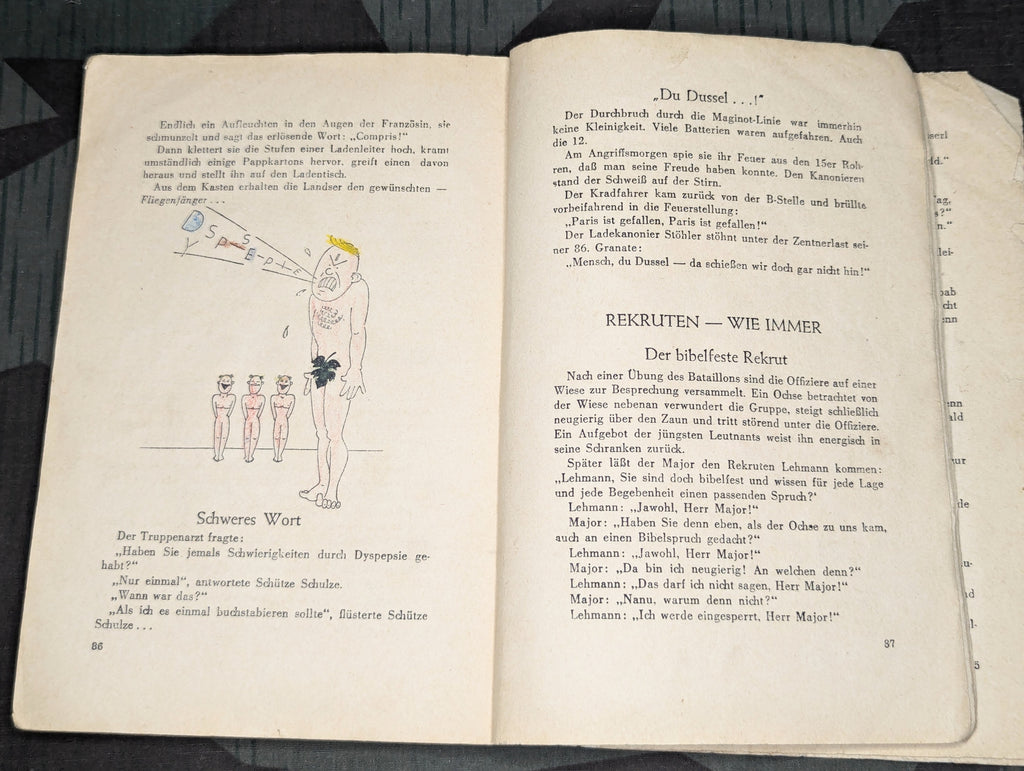 Endlich ein Aufleuchten in den Augen der Französin, sie
schmunzelt und sagt das erlösende Wort: „Compris!"
Dann klettert sie die Stufen einer Ladenleiter hoch, kramt
umständlich einige Pappkartons hervor, greift einen davon
heraus und stellt ihn auf den Ladentisch.
Aus dem Kasten erhalten die Landser den gewünschten —
Fliegenfänger . . .
Schweres Wort
Der Truppenarzt fragte:
„Haben Sie jemals Schwierigkeiten durch Dyspepsie ge-
habt?"
„Nur einmal", antwortete Schütze Schulze.
„Wann war das?"
„Als ich es einmal buchstabieren sollte", flüsterte Schütze
Schulze . . .
86
„Du Dussel . . .!"
Der Durchbruch durch die Maginot-Linie war immerhin
keine Kleinigkeit. Viele Batterien waren aufgefahren. Auch
die 12.
Am Angriffsmorgen spie sie ihr Feuer aus den 15er Roh-
ren, daß man seine Freude haben konnte. Den Kanonieren
stand der Schweiß auf der Stirn.
Der Kradfahrer kam zurück von der B-Stelle und brüllte
vorbeifahrend in die Feuerstellung:
„Paris ist gefallen, Paris ist gefallen!"
Der Ladekanonier Stöhler stöhnt unter der Zentnerlast sei-
ner 86. Granate:
„Mensch, du Dussel — da schießen wir doch gar nicht hin!"
REKRUTEN — WIE IMMER
Der bibelfeste Rekrut
Nach einer Übung des Bataillons sind die Offiziere auf einer
Wiese zur Besprechung versammelt. Ein Ochse betrachtet von
der Wiese nebenan verwundert die Gruppe, steigt schließlich
neugierig über den Zaun und tritt störend unter die Offiziere.
Ein Aufgebot der jüngsten Leutnants weist ihn energisch in
seine Schranken zurück.
Später läßt der Major den Rekruten Lehmann kommen:
„Lehmann, Sie sind doch bibelfest und wissen für jede Lage
und jede Begebenheit einen passenden Spruch?'
Lehmann: „Jawohl, Herr Major!"
Major: „Haben Sie denn eben, als der Ochse zu uns kam,
auch an einen Bibelspruch gedacht?"
Lehmann: „Jawohl, Herr Major!"
Major: „Da bin ich neugierig! An welchen denn?"
Lehmann: „Das darf ich nicht sagen, Herr Major!"
Major: „Nanu, warum denn nicht?"
Lehmann: „Ich werde eingesperrt, Herr Major!"
87